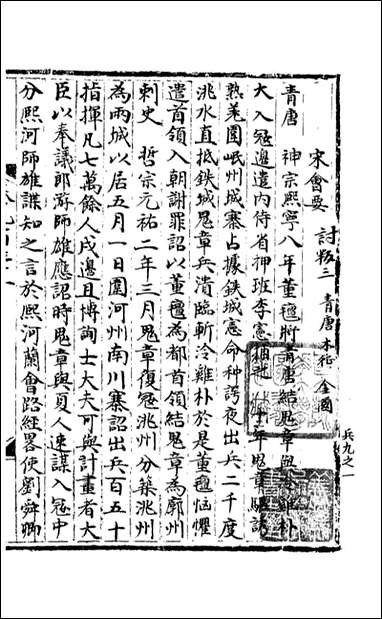 宋會要
討叛三 青唐 木征 金國
青唐 神宗熙寧八年董氊將青唐結鬼章與冷雞朴
大入寇邊遣内侍省押班李憲 十年鬼章驅誘
熟羌圍岷州城寨占據鉄城憲命种諤夜出兵二千度
洮水直抵鉄城鬼章兵潰臨斬冷雞朴於是董氊惱懼
遣首領入朝謝罪詔以董氊為都首領結鬼章為廓州
刺史 哲宗元祐二年三月鬼章復寇洮州分築洮州
為兩城以居五月一日圍河州南川寨詔出兵百五十
指揮凡七萬餘人戍邊且博詢士大夫可與計畫者大
臣以奏議郎游師雄應詔時鬼章與夏人連謀入寇中
分熙河師雄諜知之言於熙河蘭會路經畧使劉舜卿
兵九之一